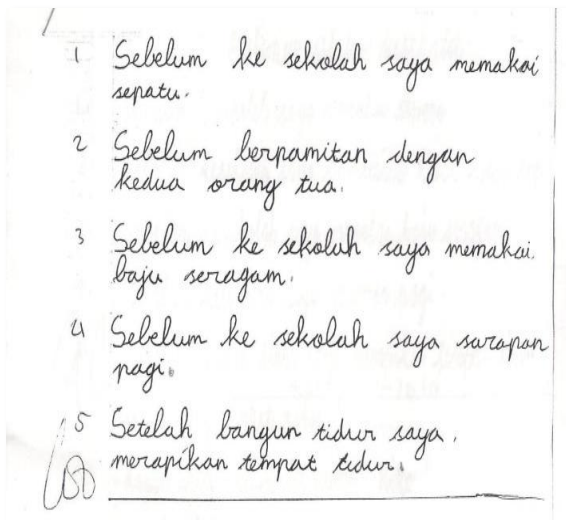 1 Sebelum ke sekolah saya memakai
sepatu.
2 Sebelum berpamitan dengan
kedua orang tua.
3 Sebelum ke sekolah saya memakai.
baju seragam.
4 Sebelum ke sekolah saya sarapan
pagi.
5 Setelah bangun tidur saya.
merapikan tempat tidur.